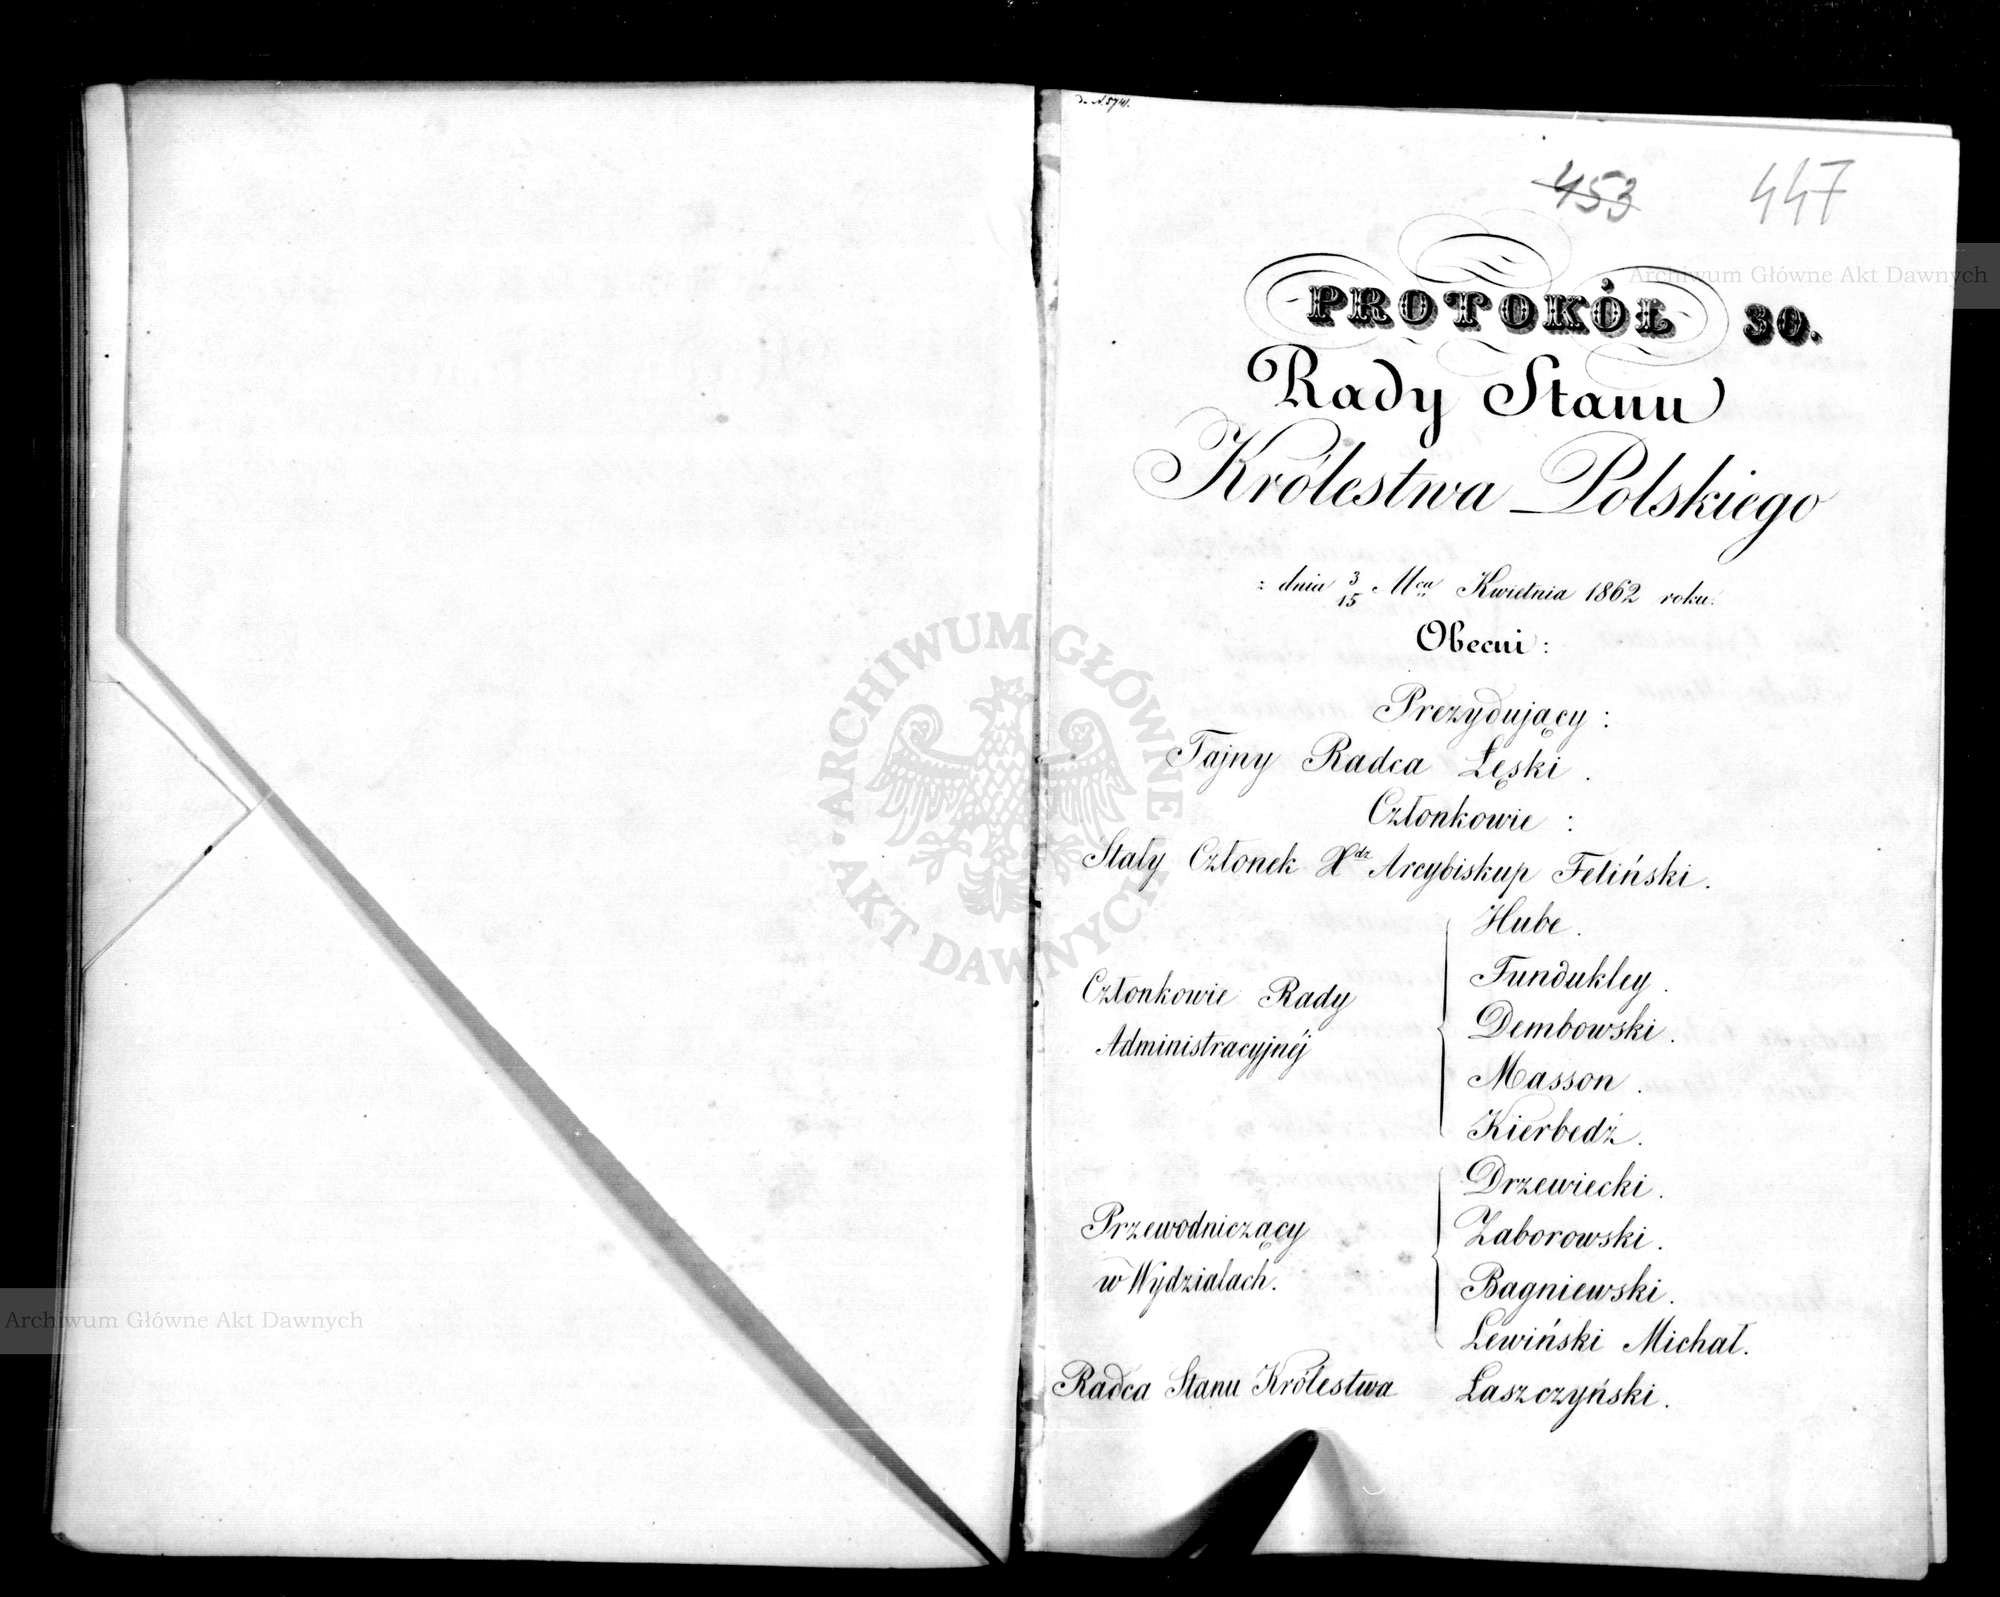 453
447
PROTOKÓŁ 30.
Rady Stanu
Królestwa Polskiego
z dnia 3/15 Mca Kwietnia 1862 roku.
Obecni:
Prezydujący:
Tajny Radca Łęski.
Członkowie:
Stały Członek Xdz Arcybiskup Feliński.
Członkowie Rady
Administracyjnéj
Hube.
Fundukley.
Dembowski.
Masson.
Kierbedź.
Przewodniczący
w Wydziałach.
Drzewiecki.
Zaborowski.
Bagniewski.
Lewiński Michał.
Radca Stanu Królestwa Łaszczyński.
Archiwum Główne Akt Dawnych
Archiwum Główne Akt Dawnych
ARCHIWUM GŁÓWNE AKT DAWNYCH